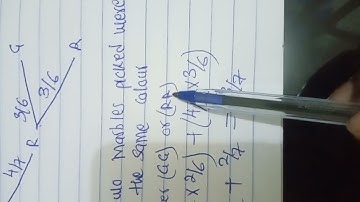 G
3/6
R
4/7
R
3/6
marbles picked were
the same colour
(GG) or (RR)
× 2/6) + (4/7 × 3/6)
+ 2/7 = 3/7